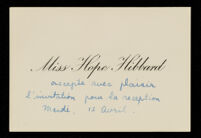 Miss Hope Hibbard
accepte avec plaisir
l'invitation pour la reception
Mardi, 12 Avril.